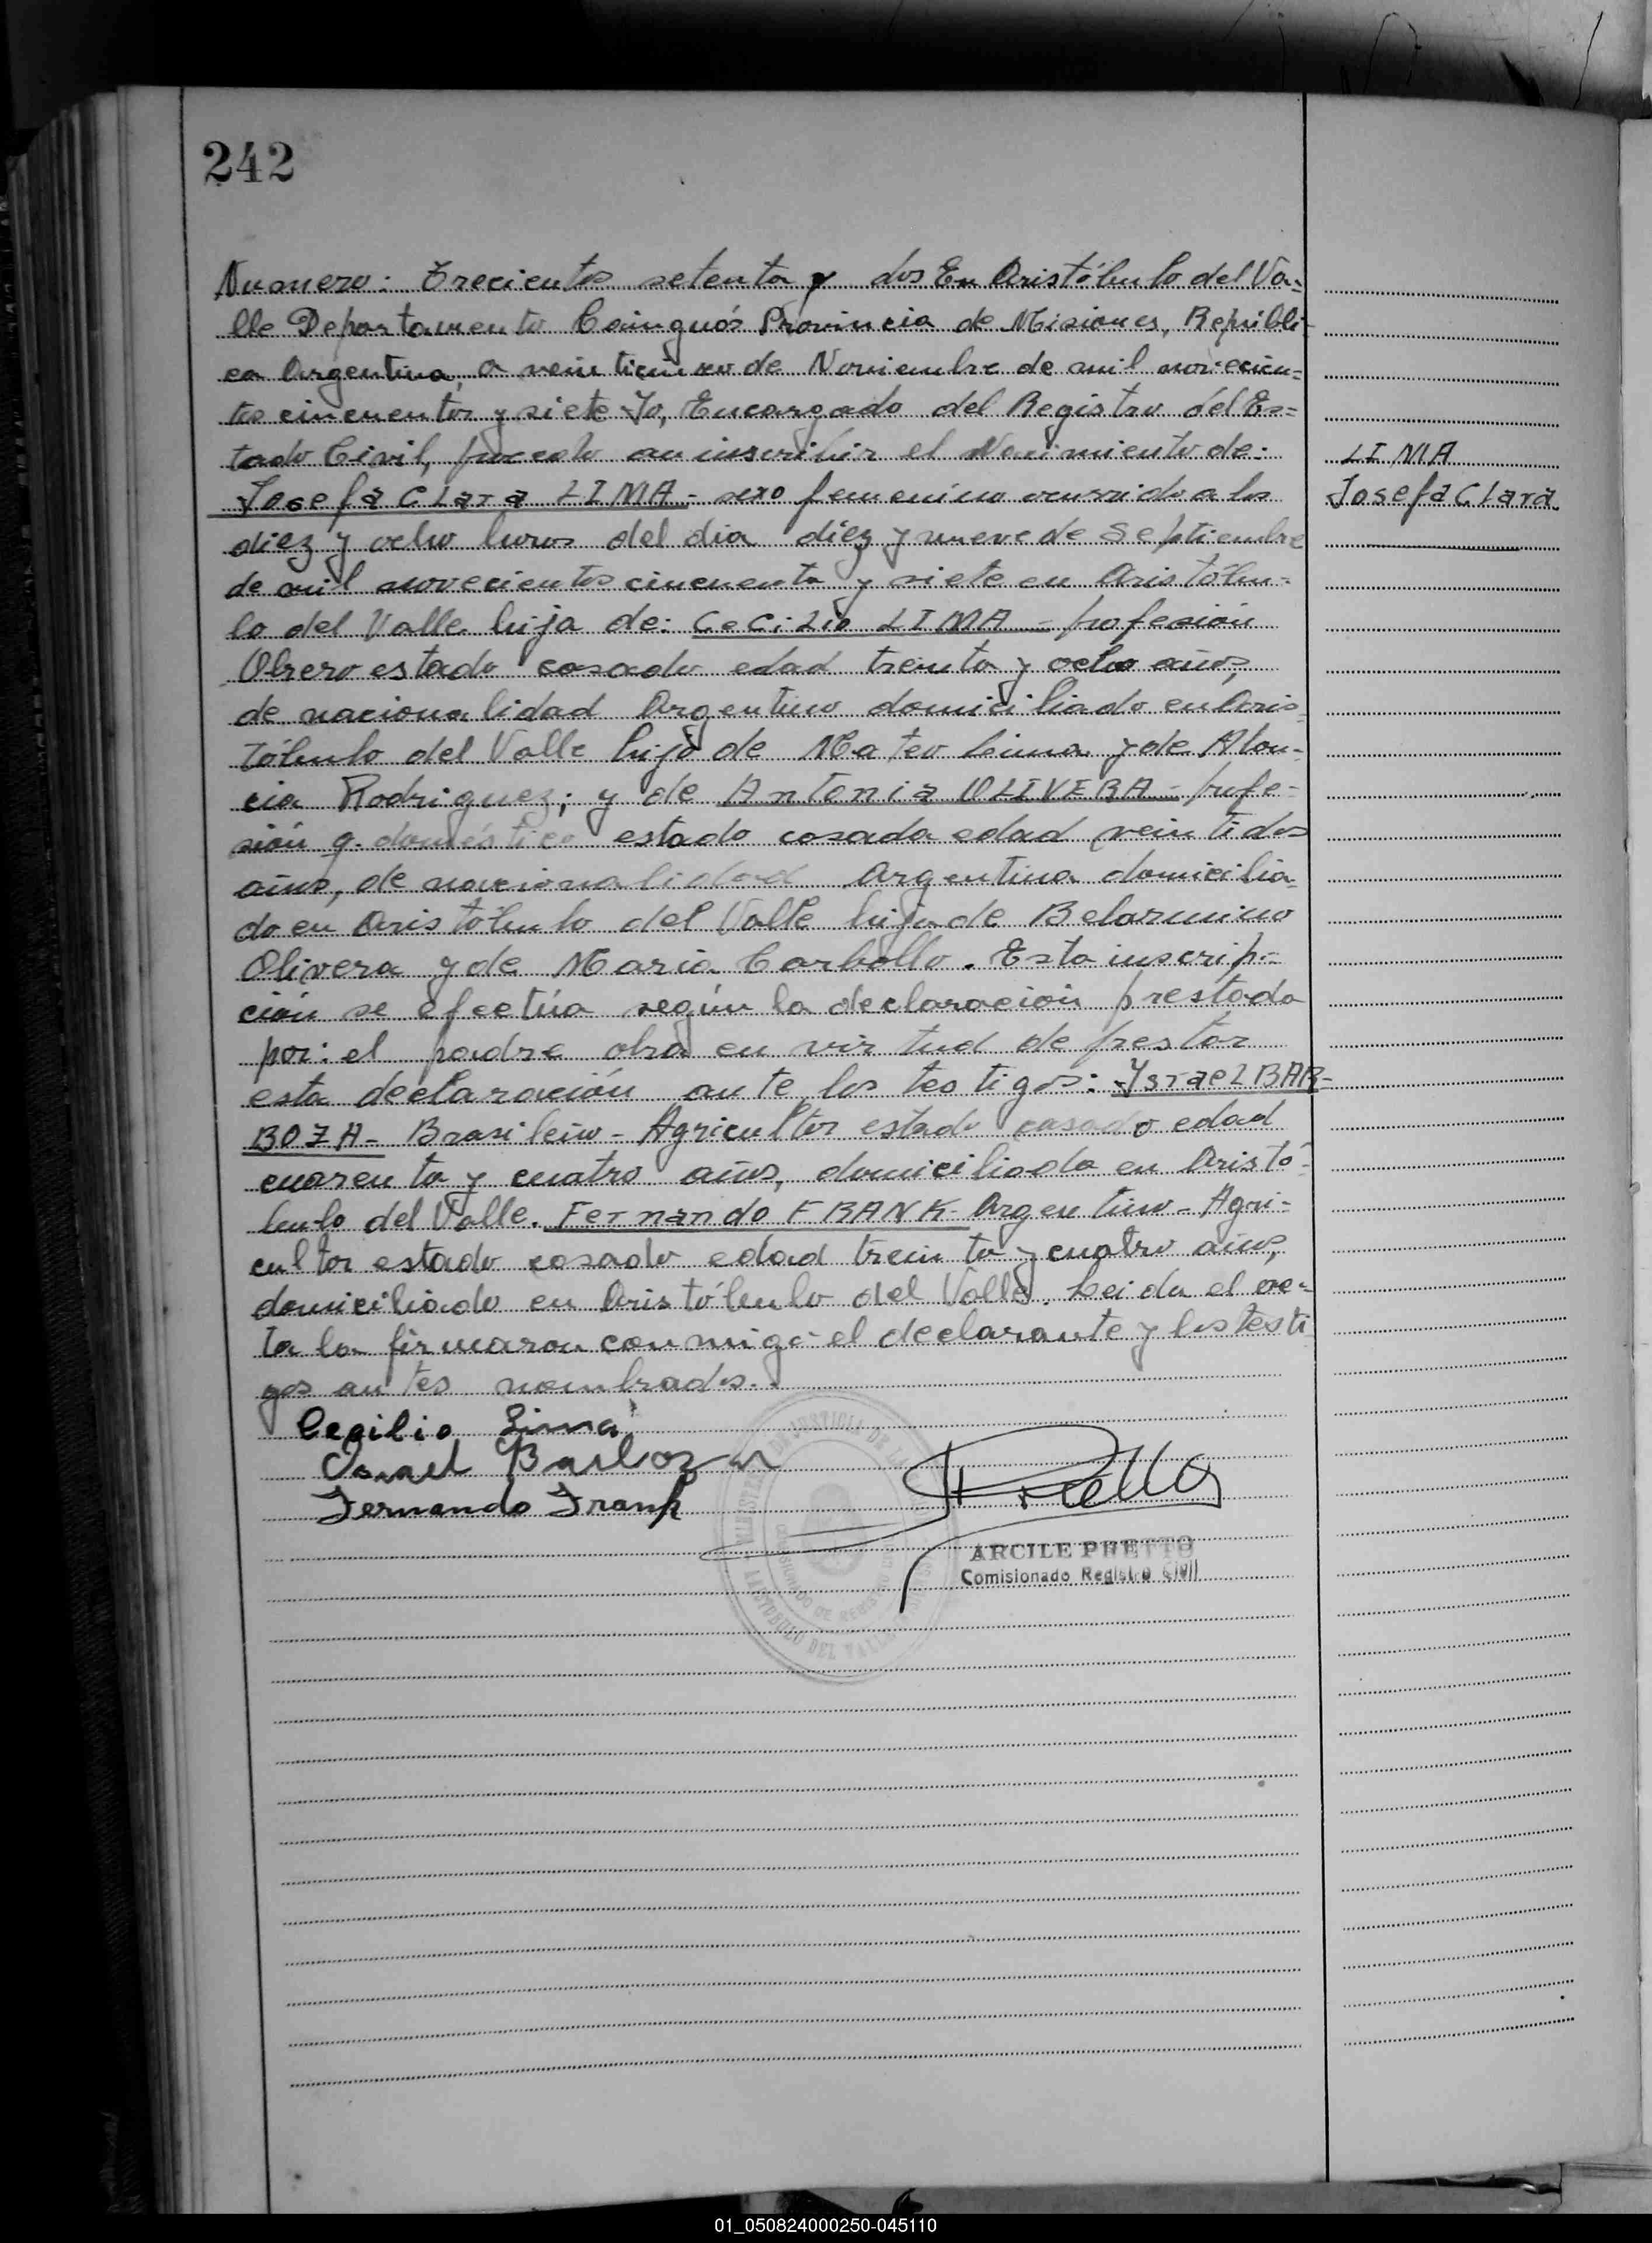 242
Numero: Trecientos setenta y dos En Aristóbulo del Va-
lle Departamento Cainguás Provincia de Misiones, Repúbli-
ca Argentina, a veinticinco de Noviembre de mil novecien-
tos cincuenta y siete Yo, Encargado del Registro del Es-
tado Civil, procedo an inscribir el Nacimiento de:
LIMA
Josefa Clara LIMA - sexo femenino ocurrido a las
Josefa Clara
diez y ocho horas del dia diez y nueve de Septiembre
de mil novecientos cincuenta y siete en Aristóbu-
lo del Valle hija de: CeCiLio LIMA - profesión
Obrero estado casado edad treinta y ocho años,
de nacionalidad Argentino domiciliado en Aris-
tóbulo del Valle hijo de Mateo Lima y de
cia Rodriguez; y de Antonia OLIVERA - profe-
sión q. doméstico estado casada edad veintidos
años, de nacionalidad Argentina domicilia-
do en Aristóbulo del Valle hija de Belarmino
Olivera y de Maria Carballo. Esta inscrip-
ción se efectúa según la declaración prestada
por: el padre obra en virtud de prestar
esta declaración ante los testigos: YsraeL BAR-
BOZA - Brasileño - Agricultor estado casado edad
cuarenta y cuatro años, domiciliado en Aristó-
bulo del Valle. Fernando FRANK - Argentino - Agri-
cultor estado casado edad treinta y cuatro años,
domiciliado en Aristóbulo del Valle. Leida el ac-
ta la firmaron conmigo el declarante y los testi
gos antes nombrados.
Cecilio Lima
Israel Barboza
Fernando Frank
ARCILE PRETTO
Comisionado Registro Civil
01_050824000250-045110